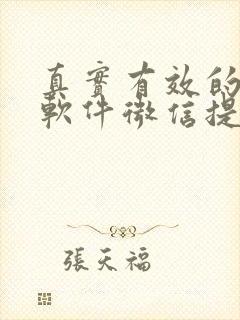 真實有效的
軟件微信提
張天福